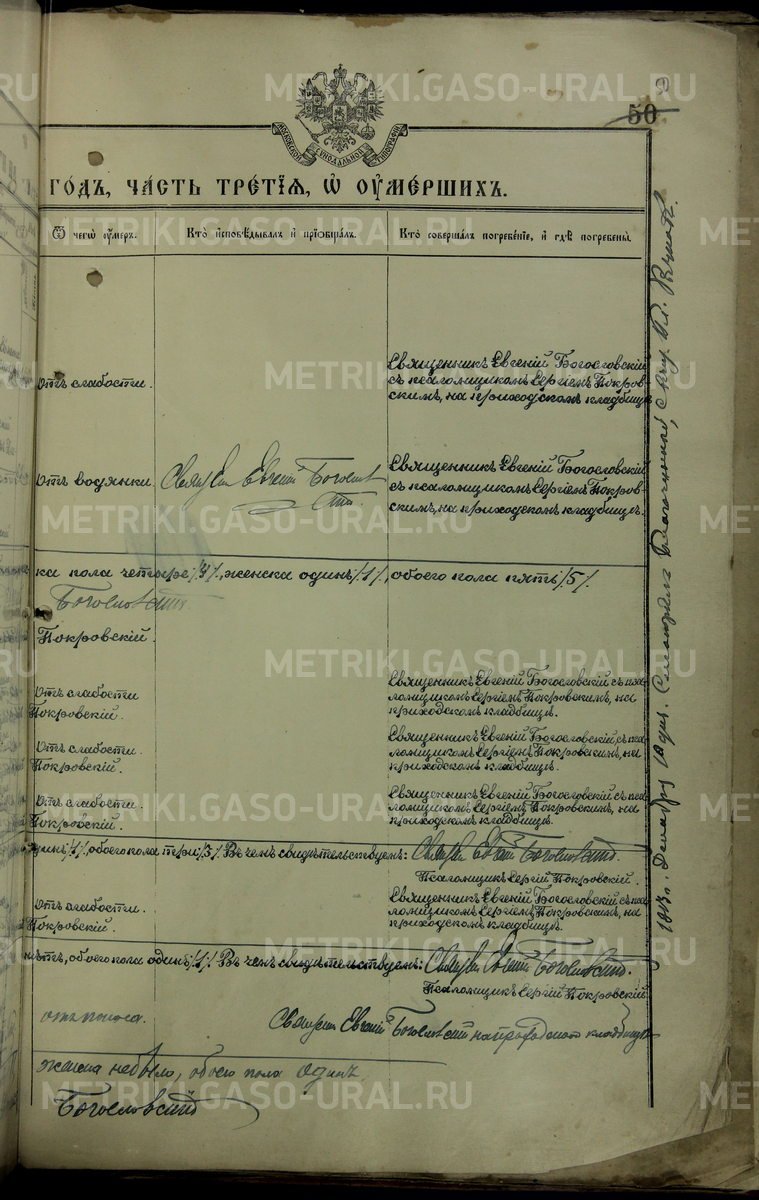 50
МОСКОВСКОЙ СѴНОДАЛЬНОЙ ТИПОГРАФІИ
ГО́ДЪ, ЧА́СТЬ ТРЕ́ТІѦ, Ѡ ОУМЕ́РШИХЪ.
Ѿ чегѡ̀ оу́меръ.
Кто̀ и҆сповѣ́дывалъ и҆ прїѻбща́лъ.
Кто̀ соверша́лъ погребе́нїе, и҆ гдѣ̀ погребены̀.
Отъ слабости.
Священникъ Евгеній Богословскій
съ псаломщикомъ Сергіемъ Покров-
скимъ, на приходскомъ кладбищѣ.
Отъ водянки.
Священ Евгеній Богослов
скій
Священникъ Евгеній Богословскій
съ псаломщикомъ Сергіемъ Покров-
скимъ, на приходскомъ кладбищѣ.
ка пола четыре /4/, женска одинъ /1/, обоего пола пять /5/.
Богословскій
Покровскій.
Отъ слабости
Покровскій.
Священникъ Евгеній Богословскій съ пса-
ломщикомъ Сергіемъ Покровскимъ, на
приходскомъ кладбищѣ.
Отъ слабости.
Покровскій.
Священникъ Евгеній Богословскій, съ пса-
ломщикомъ Сергіемъ Покровскимъ, на
приходскомъ кладбищѣ.
Отъ слабости.
Покровскій.
Священникъ Евгеній Богословскій съ пса-
ломщикомъ Сергіемъ Покровскимъ, на
приходскомъ кладбищѣ.
динъ /1/, обоего пола три /3/. Въ чемъ свидѣтельствуемъ: Священ Евгеній Богословскій.
Псаломщикъ Сергій Покровскій.
Отъ слабости.
Покровскій.
Священникъ Евгеній Богословскій съ пса-
ломщикомъ Сергіемъ Покровскимъ, на
приходскомъ кладбищѣ.
нѣтъ, обоего пола одинъ /1/. Въ чемъ свидѣтельствуемъ: Священ Евгеній Богословскій.
Псаломщикъ Сергій Покровскій
отъ поноса.
Священ Евгеній Богословскій на приходскомъ кладбищѣ
женска не было, обоего пола одинъ
Богословскій
1913 г. Декабря 18 дня. Смотрѣлъ Благочинный, Свящ.
METRIKI.GASO-URAL.RU